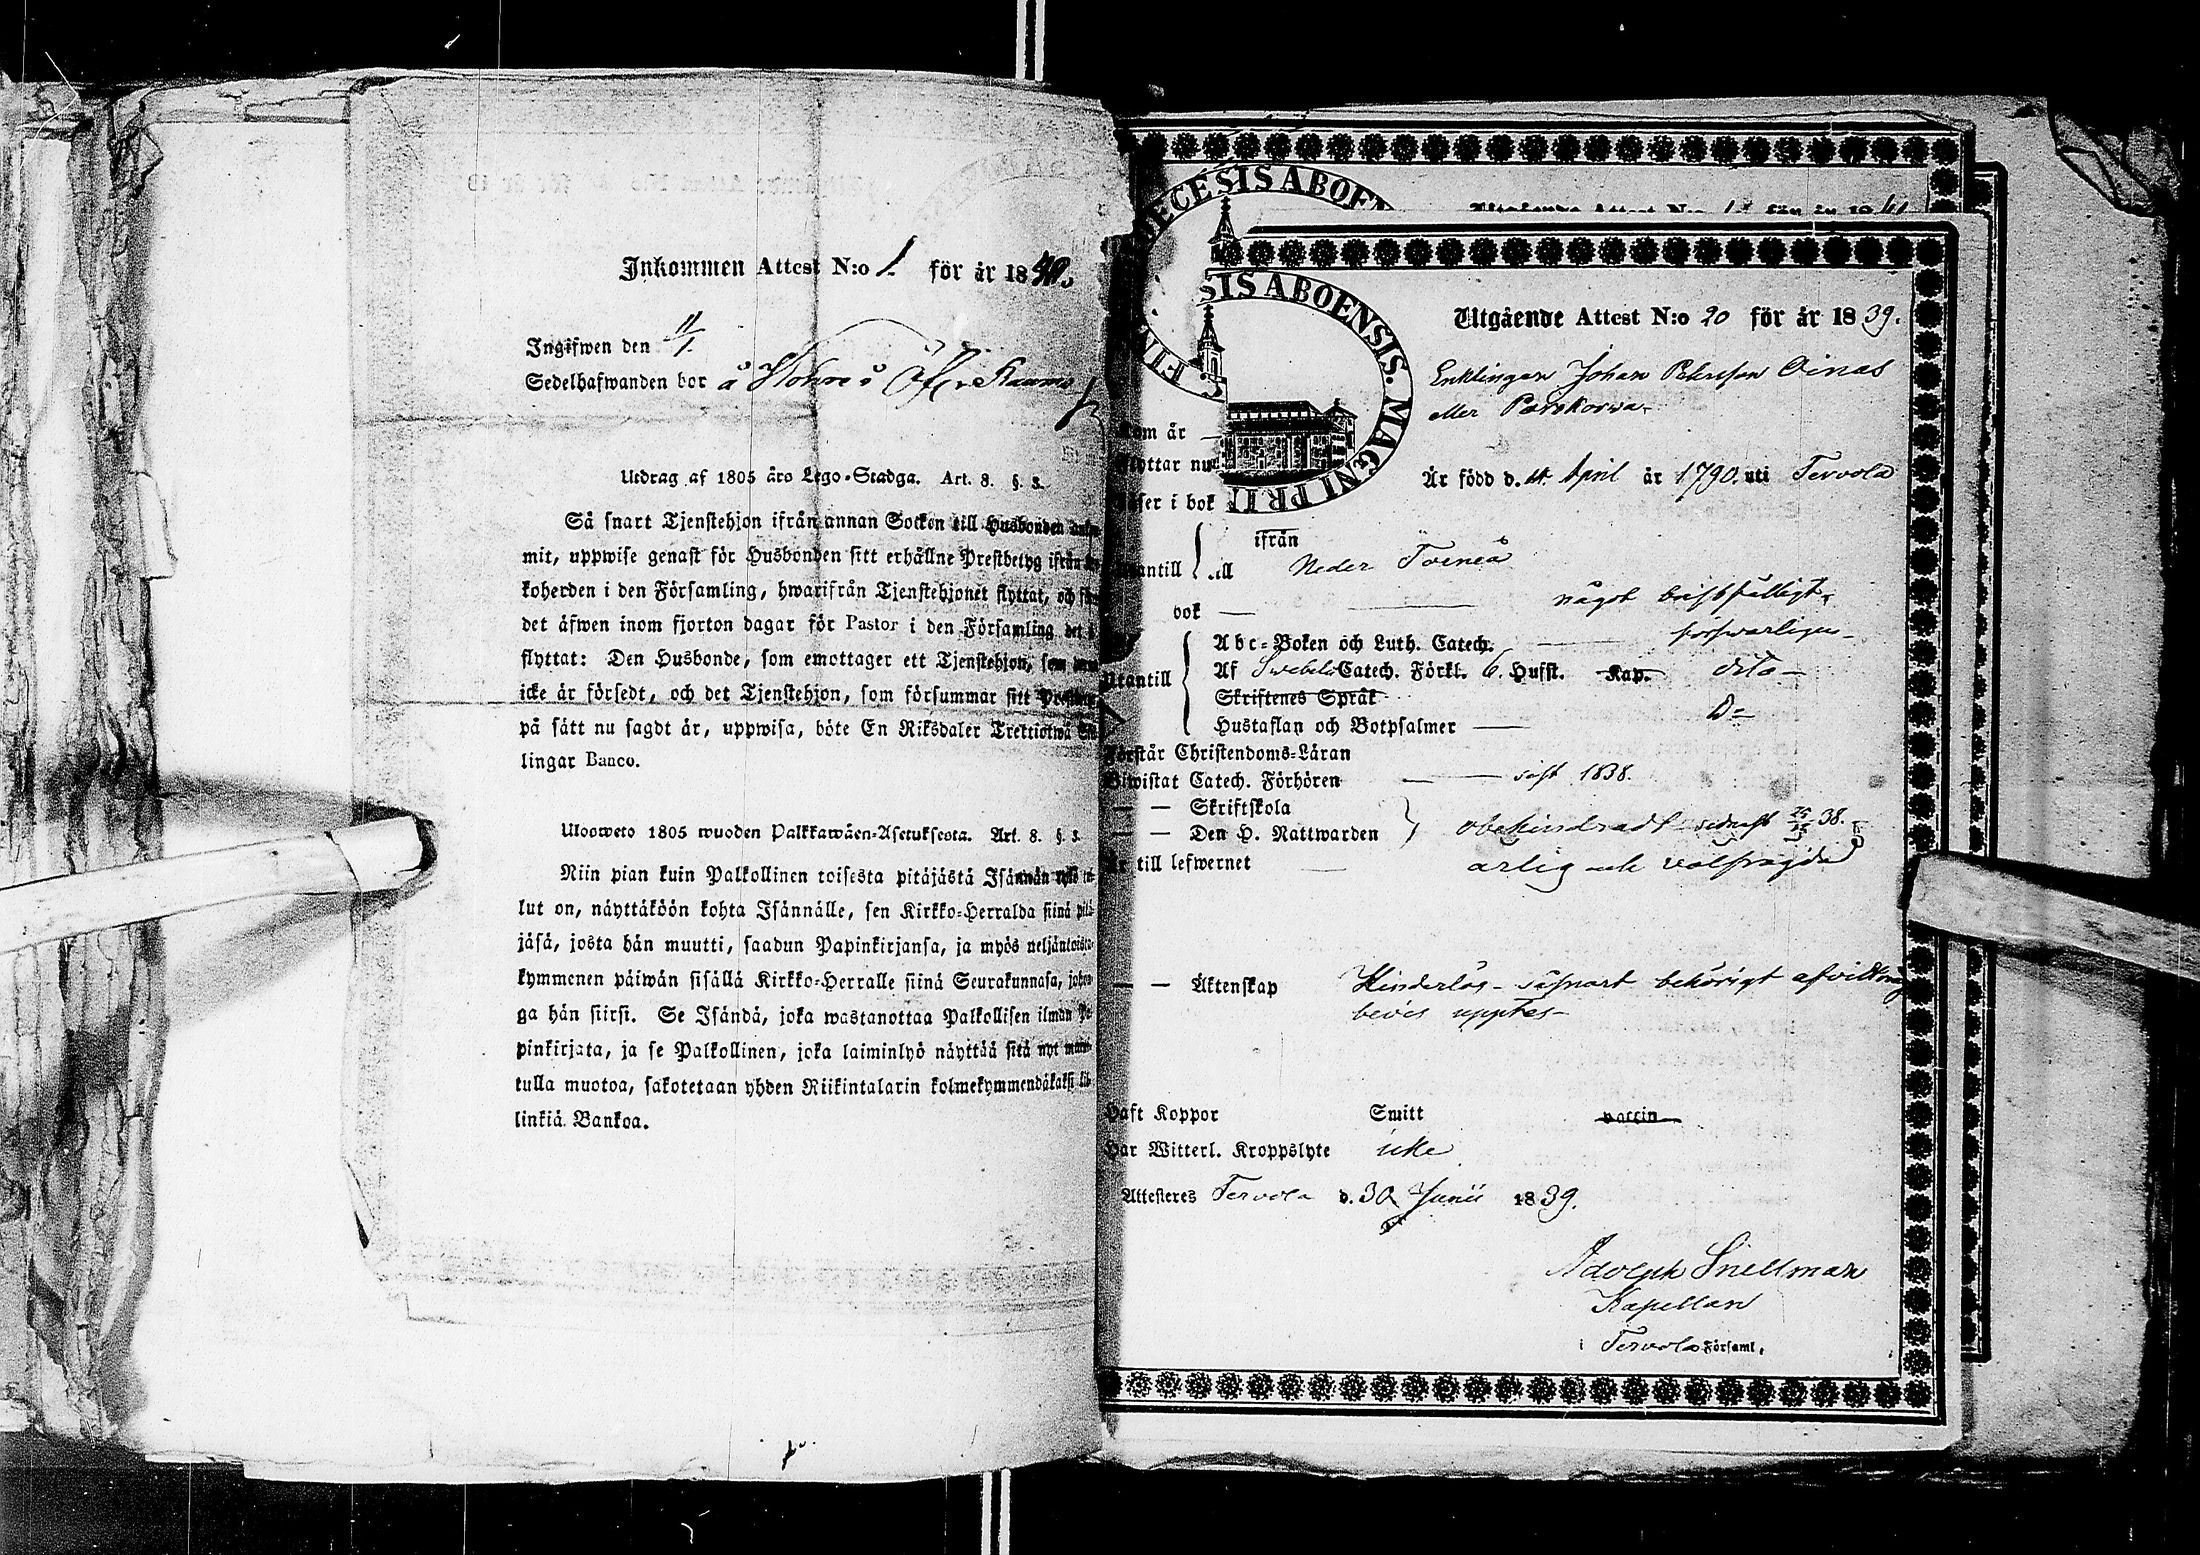 Inkommen Attest N:o 1. för år 1840.
Ingifwen den 11/1.
Sedelhafwanden bor å
Utdrag af 1805 års Lego-Stadga. Art. 8. §. 3.
Så snart Tjenstehjon ifrån annan Socken till Husbonden
mit, uppwise genast för Husbonden sitt erhållne Prestbetyg ifrån
koherden i den Församling, hwarifrån Tjenstehjonet flyttat, och
det äfwen inom fjorton dagar för Pastor i den Församling det
flyttat: Den Husbonde, som emottager ett Tjenstehjon, som
icke är försedt, och det Tjenstehjon, som försummar sitt
på sätt nu sagdt är, uppwisa, böte En Riksdaler Trettiotwå
lingar Banco.
Uloosweto 1805 wuoden Palkkawäen-Asetuksesta. Art. 8. §. 3.
Niin pian kuin Palkollinen toisesta pitäjästä Isännän
lut on, näyttäköön kohta Isännälle, sen Kirkko-Herralda siinä pitä-
jäsä, josta hän muutti, saadun Papinkirjansa, ja myös neljäntoista-
kymmenen päiwän sisällä Kirkko-Herralle siinä Seurakunnasa,
ga hän siirsi. Se Isändä, joka wastanottaa Palkollisen ilman Pa-
pinkirjata, ja se Palkollinen, joka laiminlyö näyttää sitä nyt
tulla muotoa, sakotetaan yhden Riikintalarin kolmekymmendäkaksi kil-
linkiä Bankoa.
ECESIS ABOE
SIS ABOENSIS. MAGNI PRI
Utgående Attest N:o 20 för år 1839.
Enklingen Johan Petersson Oinas
eller Parskorva
om år
lyttar nu
Är född d. 4 April år 1790. uti Tervola
ser i bok
ifrån
antill till Neder Torneå
bok — något bristfälligt
Abc-Boken och Luth. Catech. — försvarligen
Utantill Af Svebelii Catech. Förkl. 6. Hufst. Kap. dito
Skriftenes Språk
Hustaflan och Botpsalmer — D:o
Förstår Christendoms-Läran
Biwistat Catech. Förhören — sist 1838.
— — Skriftskola
— — Den H. Nattwarden obehindradt sednast 38.
Är till lefwernet — ärlig och välfrägdad
— — Äktenskap Hinderlös - såsnart behörigt afvittrings
bevis upptes
Haft Koppor Smitt vaccin
Har Witterl. Kroppslyte icke
Attesteres Tervola d. 30 Junii 1839.
Adolph Snellman
Kapellan
i Tervola Församl.